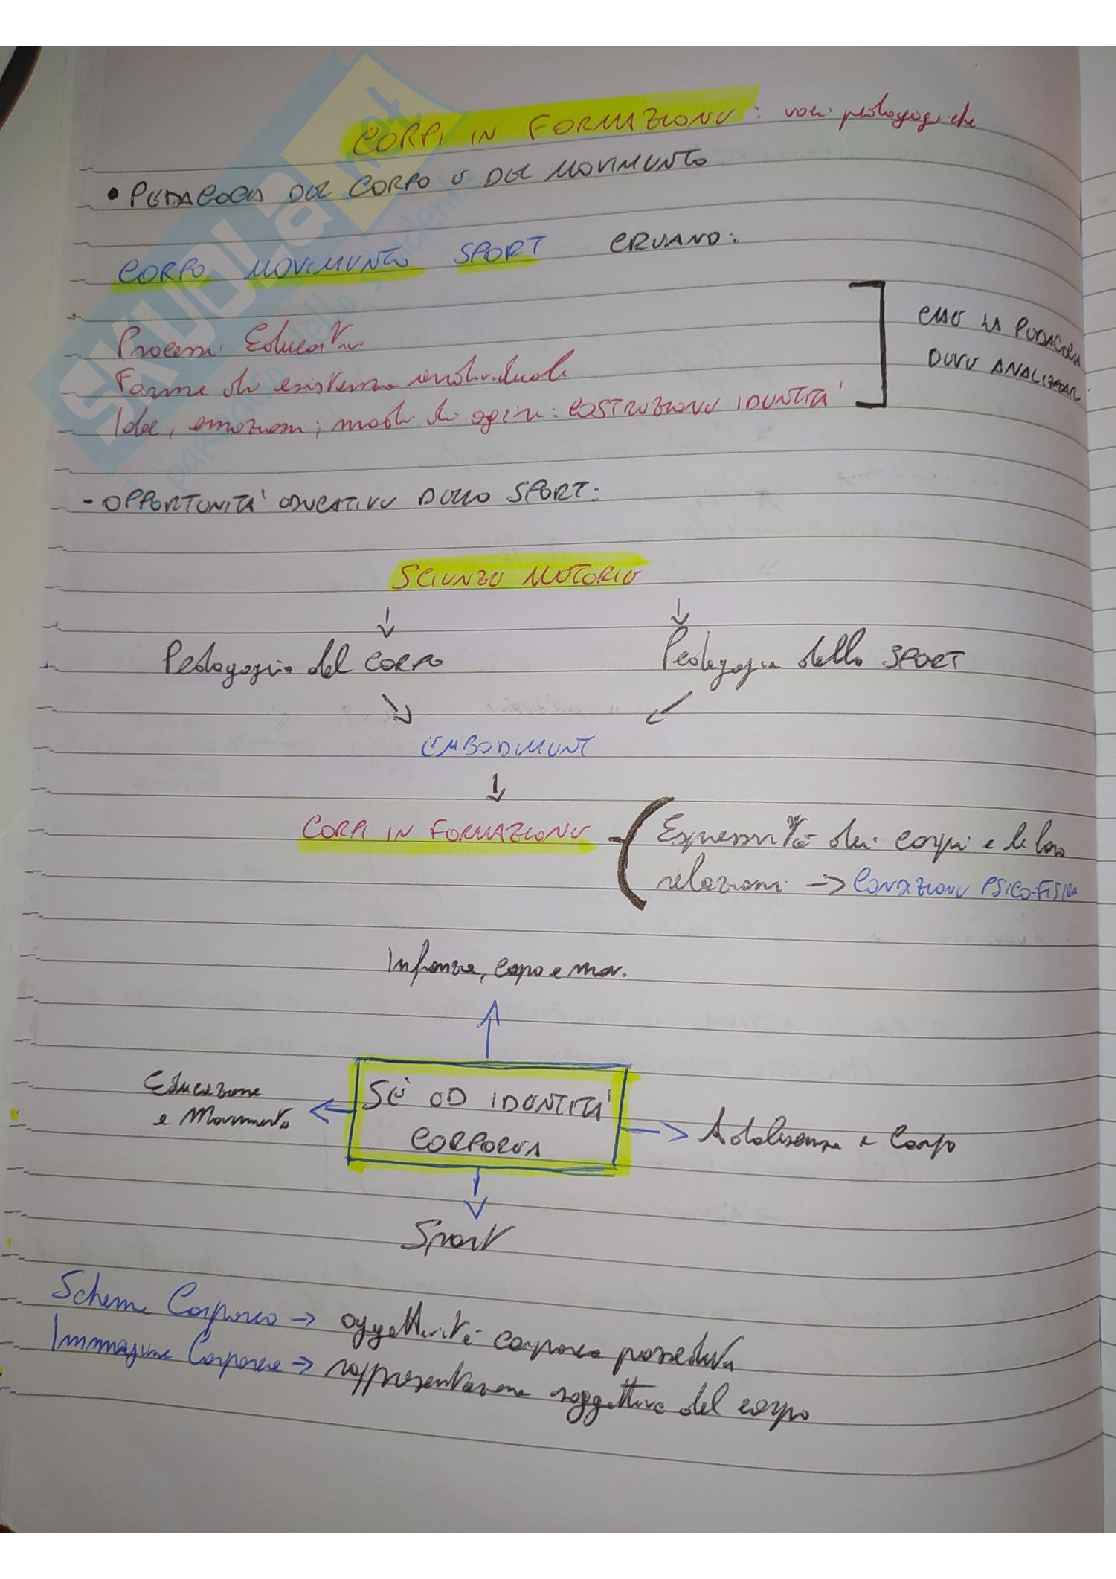 CORPI IN FORMAZIONE: voci pedagogiche
• PEDAGOGIA DEL CORPO E DEL MOVIMENTO
CORPO MOVIMENTO SPORT CREANO:
Processi Educativi
Forme di esistenza individuale
Idee, emozioni, modi di agire: COSTRUZIONE IDENTITÀ
CHE LA PEDAGOGIA
DEVE ANALIZZARE
- OPPORTUNITÀ EDUCATIVE DELLO SPORT:
SCIENZE MOTORIE
Pedagogia del CORPO
Pedagogia dello SPORT
EMBODIMENT
CORPI IN FORMAZIONE
Espressività dei corpi e le loro
relazioni → CONDIZIONE PSICO-FISICA
Infanzia, corpo e mov.
Educazione
e Movimento
SÉ ED IDENTITÀ
CORPOREA
Adolescenza e Corpo
Sport
Schema Corporeo → oggettività corporea posseduta
Immagine Corporea → rappresentazione soggettiva del corpo
SKUOLA.net